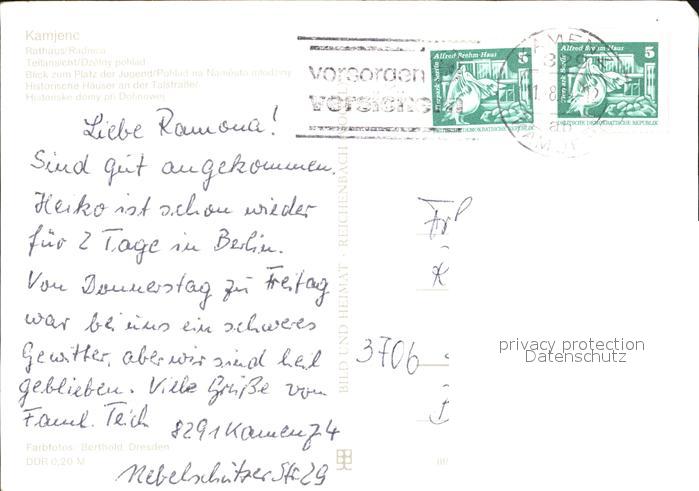 Kamjenc
Rathaus/Radnica
Teilansicht/Dźělny pohlad
Blick zum Platz der Jugend/Pohlad na Naměsto młodźiny
Historische Häuser an der Talstraße/
Historiske domy při Dolnowej
vorsorgen
versichern
Alfred Brehm-Haus 5
Tierpark Berlin
DEUTSCHE DEMOKRATISCHE REPUBLIK
Alfred Brehm-Haus 5
Tierpark Berlin
DEUTSCHE DEMOKRATISCHE REPUBLIK
KAMENZ
8290
Liebe Ramona!
Sind gut angekommen.
Heiko ist schon wieder
für 2 Tage in Berlin.
Von Donnerstag zu Freitag
war bei uns ein schweres
Gewitter, aber wir sind heil
geblieben. Viele Grüße von
Faml. Teich
8291 Kamenz 4
Nebelschützer Str. 29
Frl
K
3706
BILD UND HEIMAT · REICHENBACH
privacy protection
Datenschutz
Farbfotos: Berthold, Dresden
DDR 0,20 M